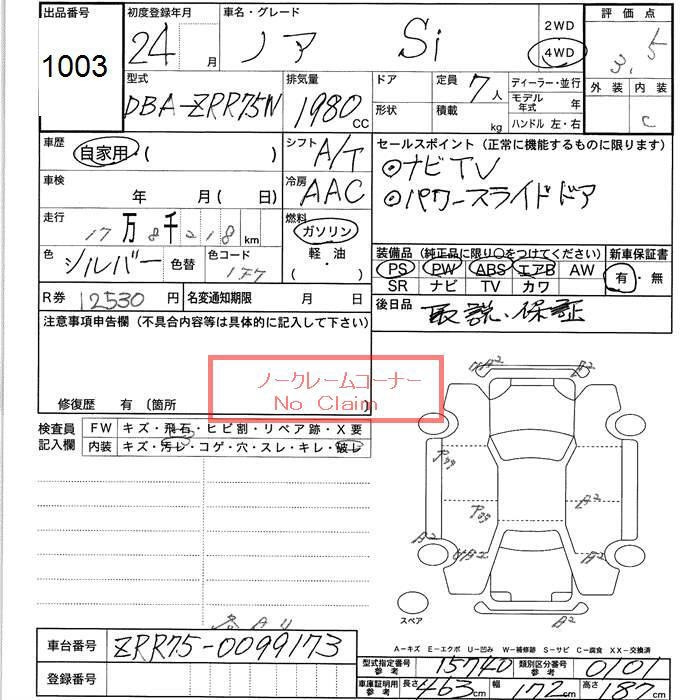 出品番号 初度登録年月 車名・グレード 評価点
1003 24 月 ノア Si 2WD 4WD 3.5
外装 内装 C
型式 排気量 ドア 定員 7人 ディーラー・並行
DBA-ZRR75W 1980 CC 形状 積載 kg モデル年式 年
ハンドル 左・右
車歴 自家用・( ) シフト A/T
セールスポイント (正常に機能するものに限ります)
◎ナビTV
◎パワースライドドア
車検 年 月( 日) 冷房 AAC
走行 17万8千218 km 燃料 ガソリン
軽・油
( ・ )
色 シルバー 色替 色コード 1F7
装備品 (純正品に限り○をつけてください) 新車保証書
PS PW ABS エアB AW 有・無
SR ナビ TV カワ
R券 12530 円 名変通知期限 月 日
後日品 取説、保証
注意事項申告欄 (不具合内容等は具体的に記入して下さい)
ノークレームコーナー
No Claim
修復歴 有 〔箇所 〕
検査員記入欄 FW キズ・飛石・ヒビ割・リペア跡・X要
内装 キズ・汚レ・コゲ・穴・スレ・キレ・破レ
A2
A2
A2
A2
スペア
A2
A-キズ E-エクボ U-凹み W-補修跡 S-サビ C-腐食 XX-交換済
車台番号 ZRR75-0099173
型式指定番号 参考 15740 類別区分番号 参考 0101
登録番号
車庫証明用 参考 長さ 463 cm 幅 172 cm 高さ 187 cm